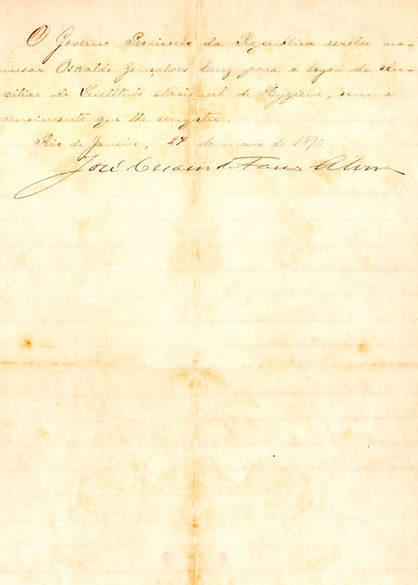 O Governo Provisorio da Republica resolve no-
mear Oswaldo Gonçalves Cruz para o logar de Au-
xiliar do Instituto Nacional de Hygiene, com o
vencimento que lhe competir.
Rio de Janeiro, 24 de maio de 1890.
José Cesario de Faria Alvim